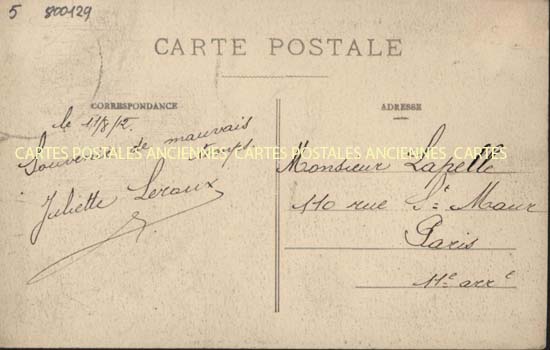 5 800129
CARTE POSTALE
CORRESPONDANCE
le 11/8/12.
Souvenir de mauvais
temps
Juliette Leroux
ADRESSE
Monsieur
110 rue St Maur
Paris
11e arrt
CARTES POSTALES ANCIENNES CARTES POSTALES ANCIENNES CARTES POSTALES ANCIENNES CARTES